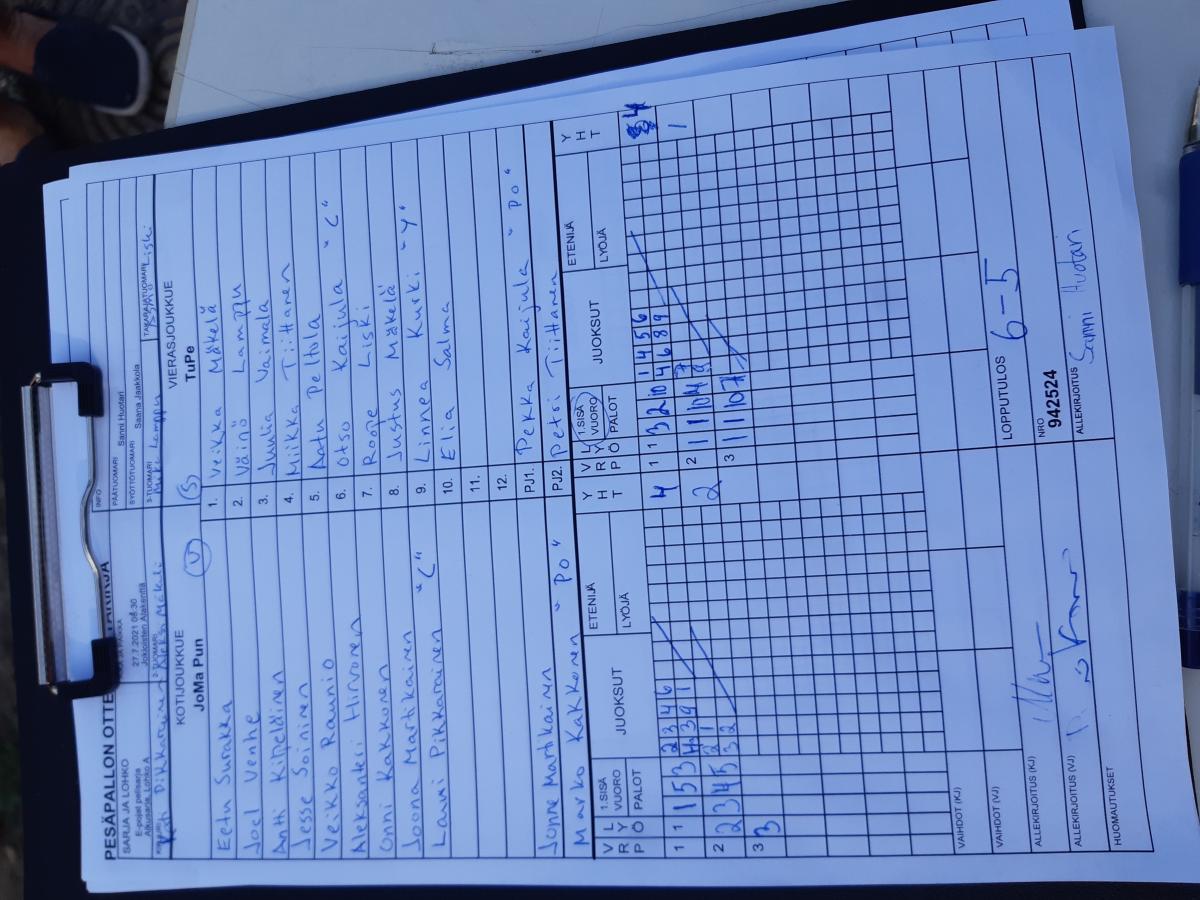 PESÄPALLON OTTE
SARJA JA LOHKO
E-pojat pelisarja
Alkusarja, Lohko A
27.7.2021 08:30
Jokioisten Alakenttä
INFO
PÄÄTUOMARI Sanni Huotari
SYÖTTÖTUOMARI Saana Jaakkola
3-TUOMARI Mika Lamppu
TAKARAJATUOMARI Liski
2-TUOMARI
KOTIJOUKKUE
JoMa Pun
VIERASJOUKKUE
TuPe
Eetu Surakka 1. Veikka Mäkelä
Joel Venhe 2. Väinö Lamppu
Antti Kipeläinen 3. Juulia Vaimala
Jesse Soininen 4. Miikka Tiittanen
Veikko Raunio 5. Aatu Peltola
Aleksanteri Hirvonen 6. Otso Kaijula "C"
Onni Kakkonen 7. Roope Liski
Joona Martikainen 8. Justus Mäkelä
Lauri Pikkarainen "C" 9. Linnea Kurki "Y"
10. Elia Salma
11.
12.
Jonne Martikainen PJ1. Pekka Kaijula "PO"
Marko Kakkonen "PO" PJ2. Petri Tiittanen
V R P L Y Ö 1.SISÄ VUORO PALOT JUOKSUT ETENIJÄ LYÖJÄ Y H T V R P L Y Ö 1.SISÄ VUORO PALOT JUOKSUT ETENIJÄ LYÖJÄ Y H T
1 1 1 5 3 2 3 4 6 4 1 1 3 2 10 1 4 5 6 4
4 3 9 1 4 6 8 9
2 2 3 4 5 2 1 2 2 1 1 10 4 7 1
3 2
3 3 3 1 1 10 7
VAIHDOT (KJ)
VAIHDOT (VJ)
LOPPUTULOS 6-5
ALLEKIRJOITUS (KJ)
NRO
942524
ALLEKIRJOITUS (VJ)
ALLEKIRJOITUS Sanni Huotari
HUOMAUTUKSET